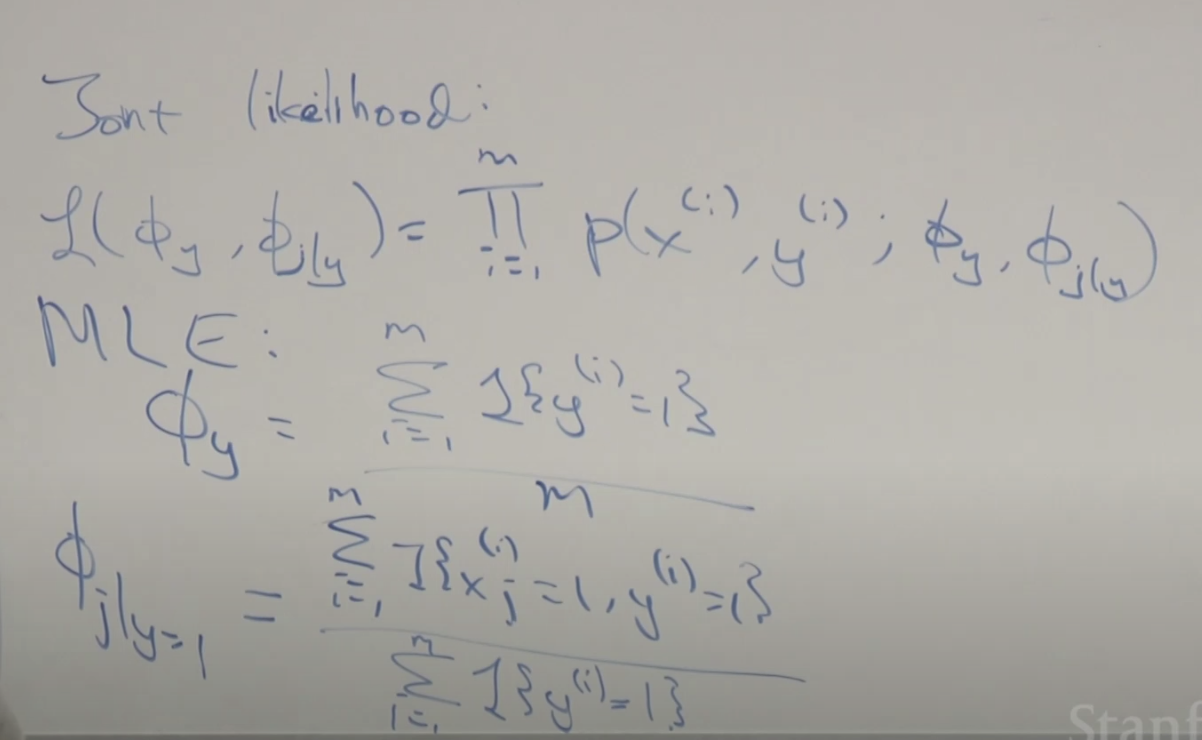 Joint likelihood:
L(ϕ_y, ϕ_{j|y}) = ∏_{i=1}^{m} p(x^{(i)}, y^{(i)}; ϕ_y, ϕ_{j|y})
MLE:
ϕ_y = \frac{∑_{i=1}^{m} 1{y^{(i)}=1}}{m}
ϕ_{j|y=1} = \frac{∑_{i=1}^{m} 1{x_j^{(i)}=1, y^{(i)}=1}}{∑_{i=1}^{m} 1{y^{(i)}=1}}
Stanf